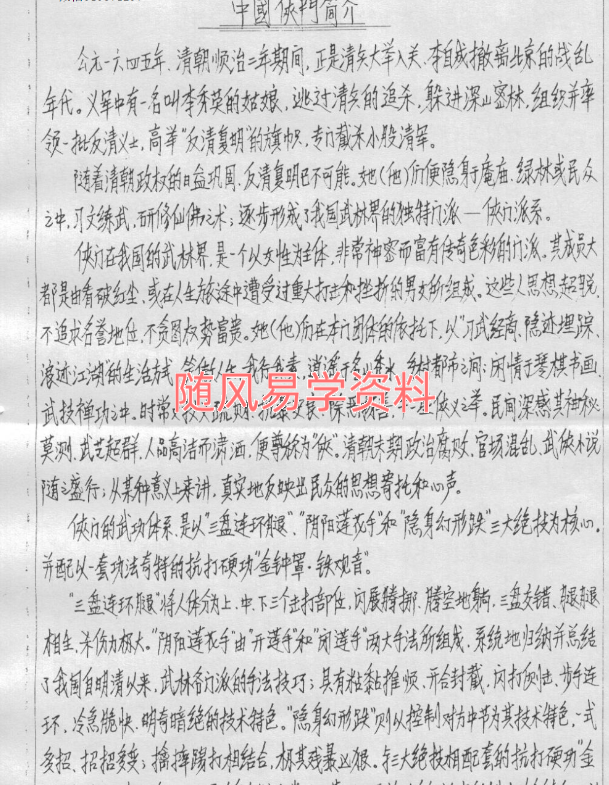 中國侠門简介
公元一六四五年、清朝顺治二年期间,正是清兵大举入关、李自成撤离北京的战乱
年代。义军中有一名叫李秀英的姑娘,逃过清兵的追杀,躲进深山密林,组织并率
领一批反清义士,高举“反清复明”的旗帜,专门截杀小股清军。
随着清朝政权的日益巩固,反清复明已不可能。她(他)们便隐身于庵庙、绿林或民众
之中,习文练武,研修仙佛之术;逐步形成了我国武林界的独特门派——侠门派系。
侠门在我国的武林界,是一个以女性为主体,非常神密而富有传奇色彩的门派。其成员大
都是由看破红尘、或在人生旅途中遭受过重大打击和挫折的男女所组成。这些人思想超脱、
不追求名誉地位,不贪图权势富贵。她(他)们在本门团体的依托下,以“习武经商、隐迹埋踪、
浪迹江湖”的生活方式,我行我素,逍遥于名山秀水、乡村都市之间;闲情于琴棋书画、
随风易学资料
武技禅功之中。时常之举。民间深感其神秘
莫测、武艺超群、人品高洁而潇洒,便尊称为“侠”。清朝末期政治腐败,官场混乱,武侠小说
随之盛行;从某种意义上来讲,真实地反映出民众的思想寄托和心声。
侠门的武功体系,是以“三盘连环腿”、“阴阳莲花手”和“隐身幻形跌”三大绝技为核心。
并配以一套功法奇特的抗打硬功“金钟罩·铁观音”。
“三盘连环腿”将人体分为上、中、下三个击打部位,闪展腾挪、腾空地躺,三盘交错、腿腿
相生,杀伤力极大。“阴阳莲花手”由“开莲手”和“闭莲手”两大手法所组成,系统地归纳并总结
了我国自明清以来,武林各门派的手法技巧;具有粘黏推顺、开合封截、闪打顶肘、步手连
环、冷急脆快、明奇暗绝的技术特色。“隐身幻形跌”则以控制对方中节为其技术特色,一式
多招、招招多变;擒摔踢打相结合,极其残最凶狠。与三大绝技相配套的抗打硬功“金